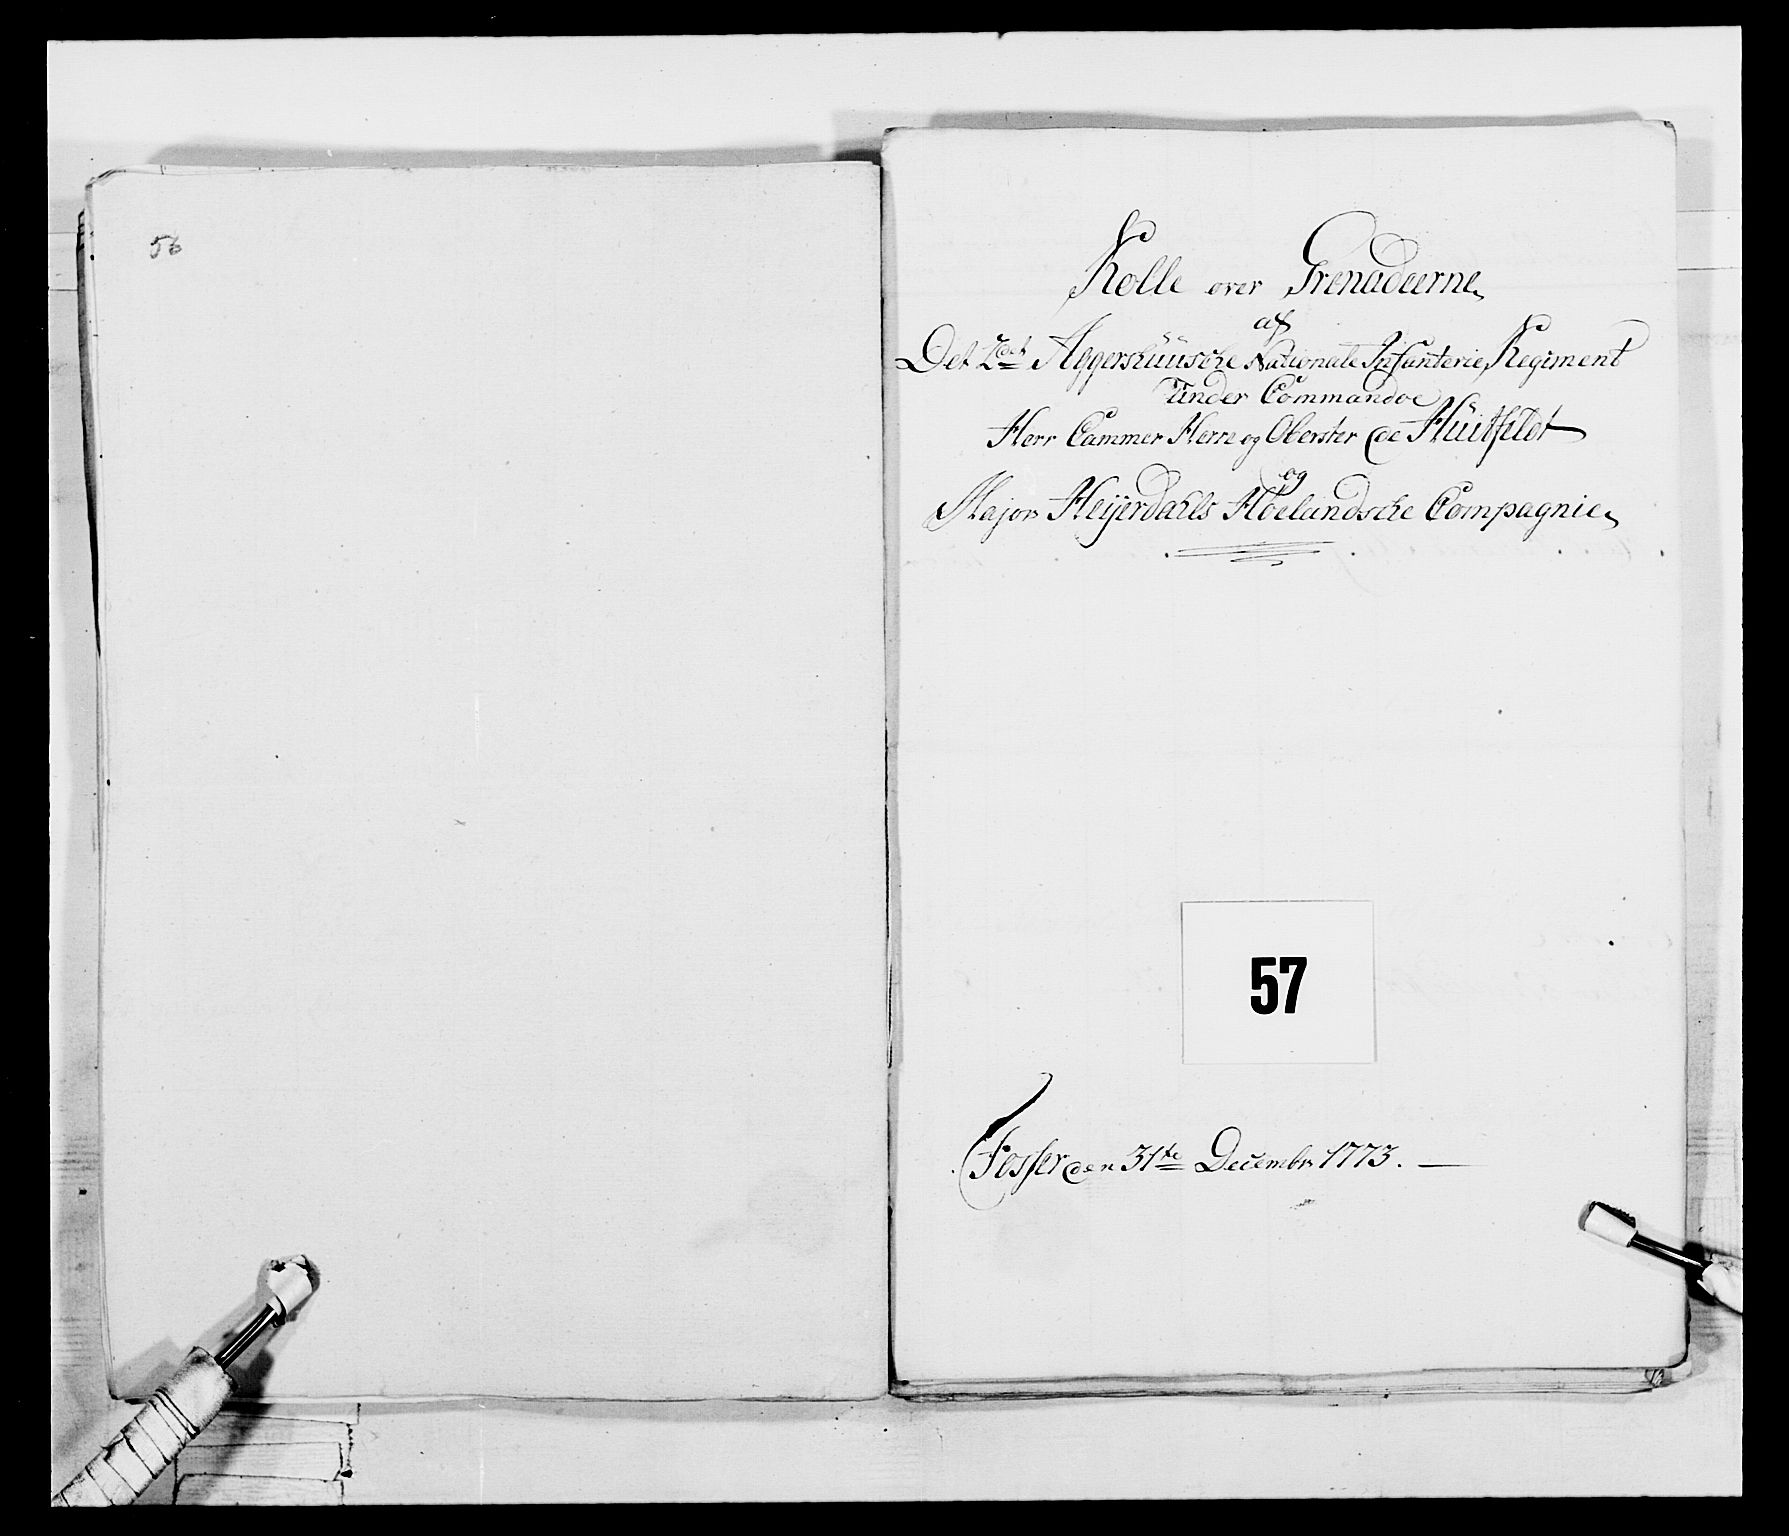 56
Rolle over Grenadeerne
af
Det 2det Aggershüüsche Nationale Infanterie Regiment
Under Commandoe
Herr Cammer Herre og Oberster de Hüitfeldt
og
Major Heijerdahls Hølandsche Compagnie
57
Fosser den 31te Decembr 1773.